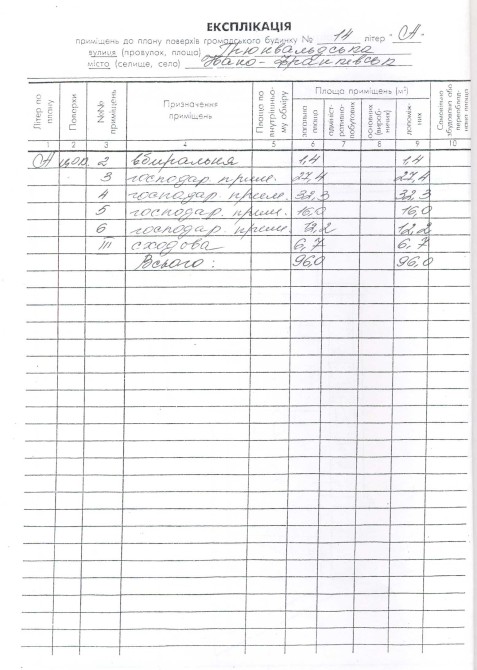 ЕКСПЛІКАЦІЯ
приміщень до плану поверхів громадського будинку № 14 літер "А"
вулиця (провулок, площа) Грюнвальдська
місто (селище, село) Івано-Франківськ
Літер по плану | Поверхи | №№ приміщень | Призначення приміщень | Площа по внутрішньому обміру | Площа приміщень (м²) | загальна площа | адміністративно-побутових | основних (виробничих) | допоміжних | Самовільно збудована або переобладнана площа
1 2 3 4 5 6 7 8 9 10
А цок. 2 вбиральня 1,4 1,4
3 господар. прим. 27,4 27,4
4 господар. прим. 32,3 32,3
5 господар. прим. 16,0 16,0
6 господар. прим. 12,2 12,2
III сходова 6,7 6,7
Всього: 96,0 96,0